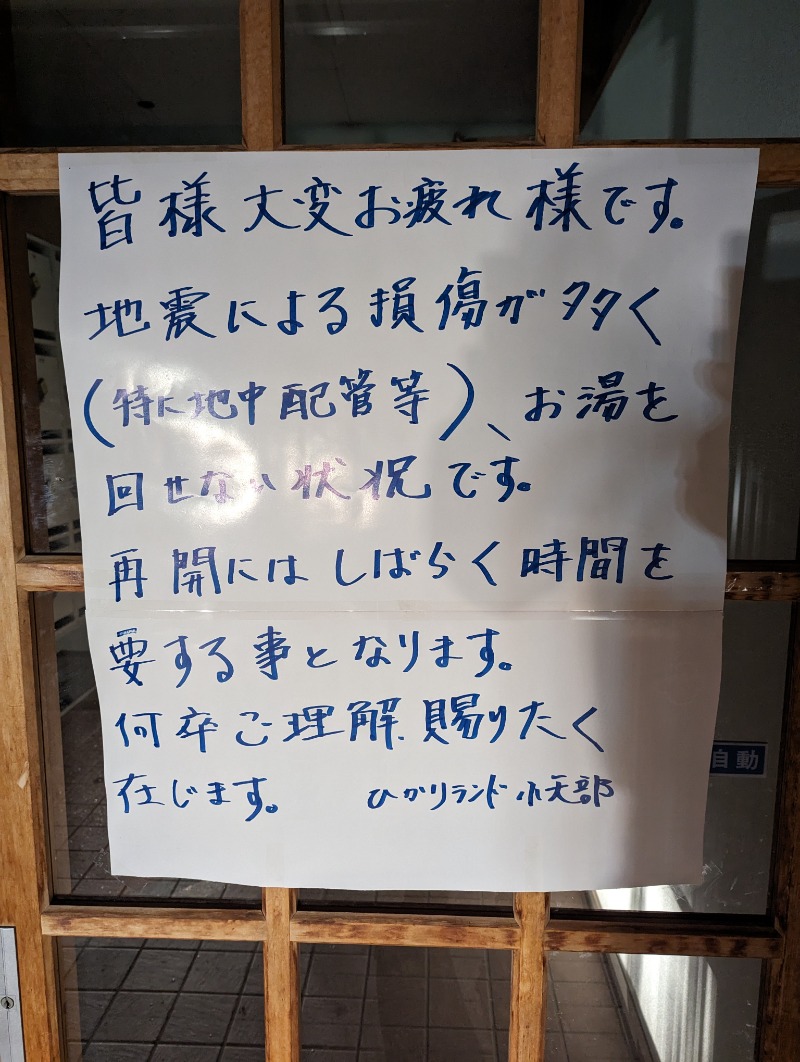 皆様大変お疲れ様です。
地震による損傷が多く
(特に地中配管等)、お湯を
回せない状況です。
再開にはしばらく時間を
要する事となります。
何卒ご理解賜りたく
存じます。 ひかりランド
自動